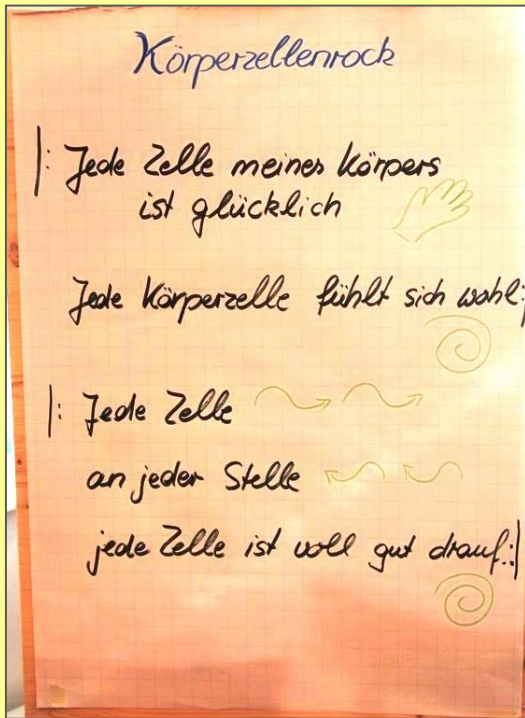 Körperzellenrock
|: Jede Zelle meines Körpers
ist glücklich
Jede Körperzelle fühlt sich wohl:|
|: Jede Zelle
an jeder Stelle
jede Zelle ist voll gut drauf.:|